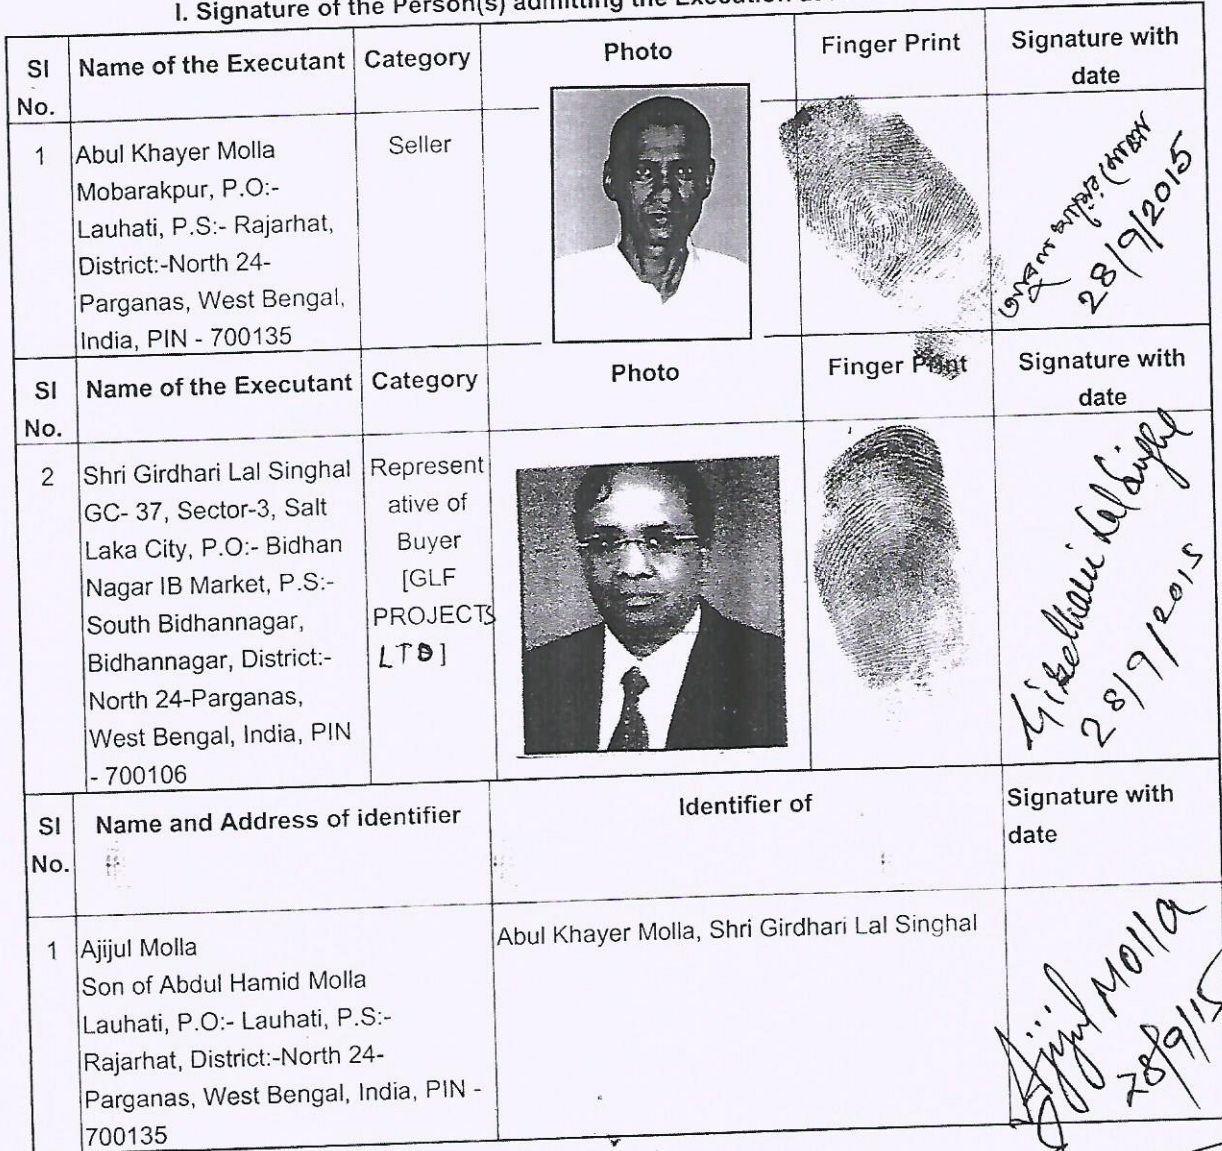 I. Signature of the Person(s) admitting the Execution
SI No.
Name of the Executant
Category
Photo
Finger Print
Signature with date
1
Abul Khayer Molla
Mobarakpur, P.O:-
Lauhati, P.S:- Rajarhat,
District:-North 24-
Parganas, West Bengal,
India, PIN - 700135
Seller
28/9/2015
SI No.
Name of the Executant
Category
Photo
Finger Print
Signature with date
2
Shri Girdhari Lal Singhal
GC- 37, Sector-3, Salt
Laka City, P.O:- Bidhan
Nagar IB Market, P.S:-
South Bidhannagar,
Bidhannagar, District:-
North 24-Parganas,
West Bengal, India, PIN
- 700106
Represent
ative of
Buyer
[GLF
PROJECTS
LTD]
Lal
28/9/2015
SI No.
Name and Address of identifier
Identifier of
Signature with
date
1
Ajijul Molla
Son of Abdul Hamid Molla
Lauhati, P.O:- Lauhati, P.S:-
Rajarhat, District:-North 24-
Parganas, West Bengal, India, PIN -
700135
Abul Khayer Molla, Shri Girdhari Lal Singhal
Ajijul Molla
28/9/15